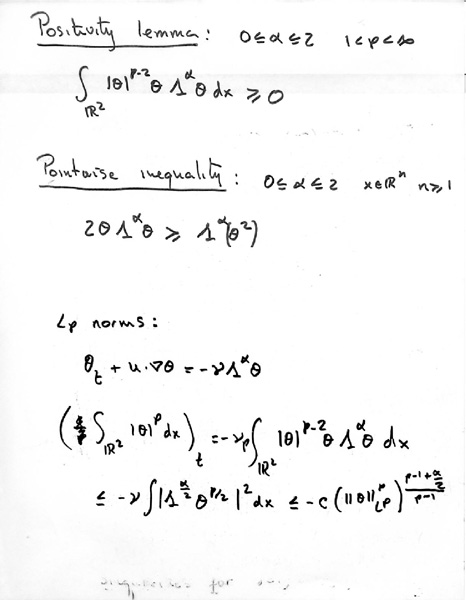 Positivity lemma: 0 ≤ α ≤ 2 1 < p < ∞
∫_{ℝ²} |θ|^{p-2} θ Λ^α θ dx ≥ 0
Pointwise inequality: 0 ≤ α ≤ 2 x ∈ ℝⁿ n ≥ 1
2θ Λ^α θ ≥ Λ^α(θ²)
Lp norms:
θ_t + u·∇θ = -νΛ^α θ
(∫_{ℝ²} |θ|^p dx)_t = -νp ∫_{ℝ²} |θ|^{p-2} θ Λ^α θ dx
≤ -ν ∫ |Λ^{α/2} θ^{p/2}|² dx ≤ -C (||θ||_{Lp}^p)^{(p-1+α/2)/(p-1)}
for